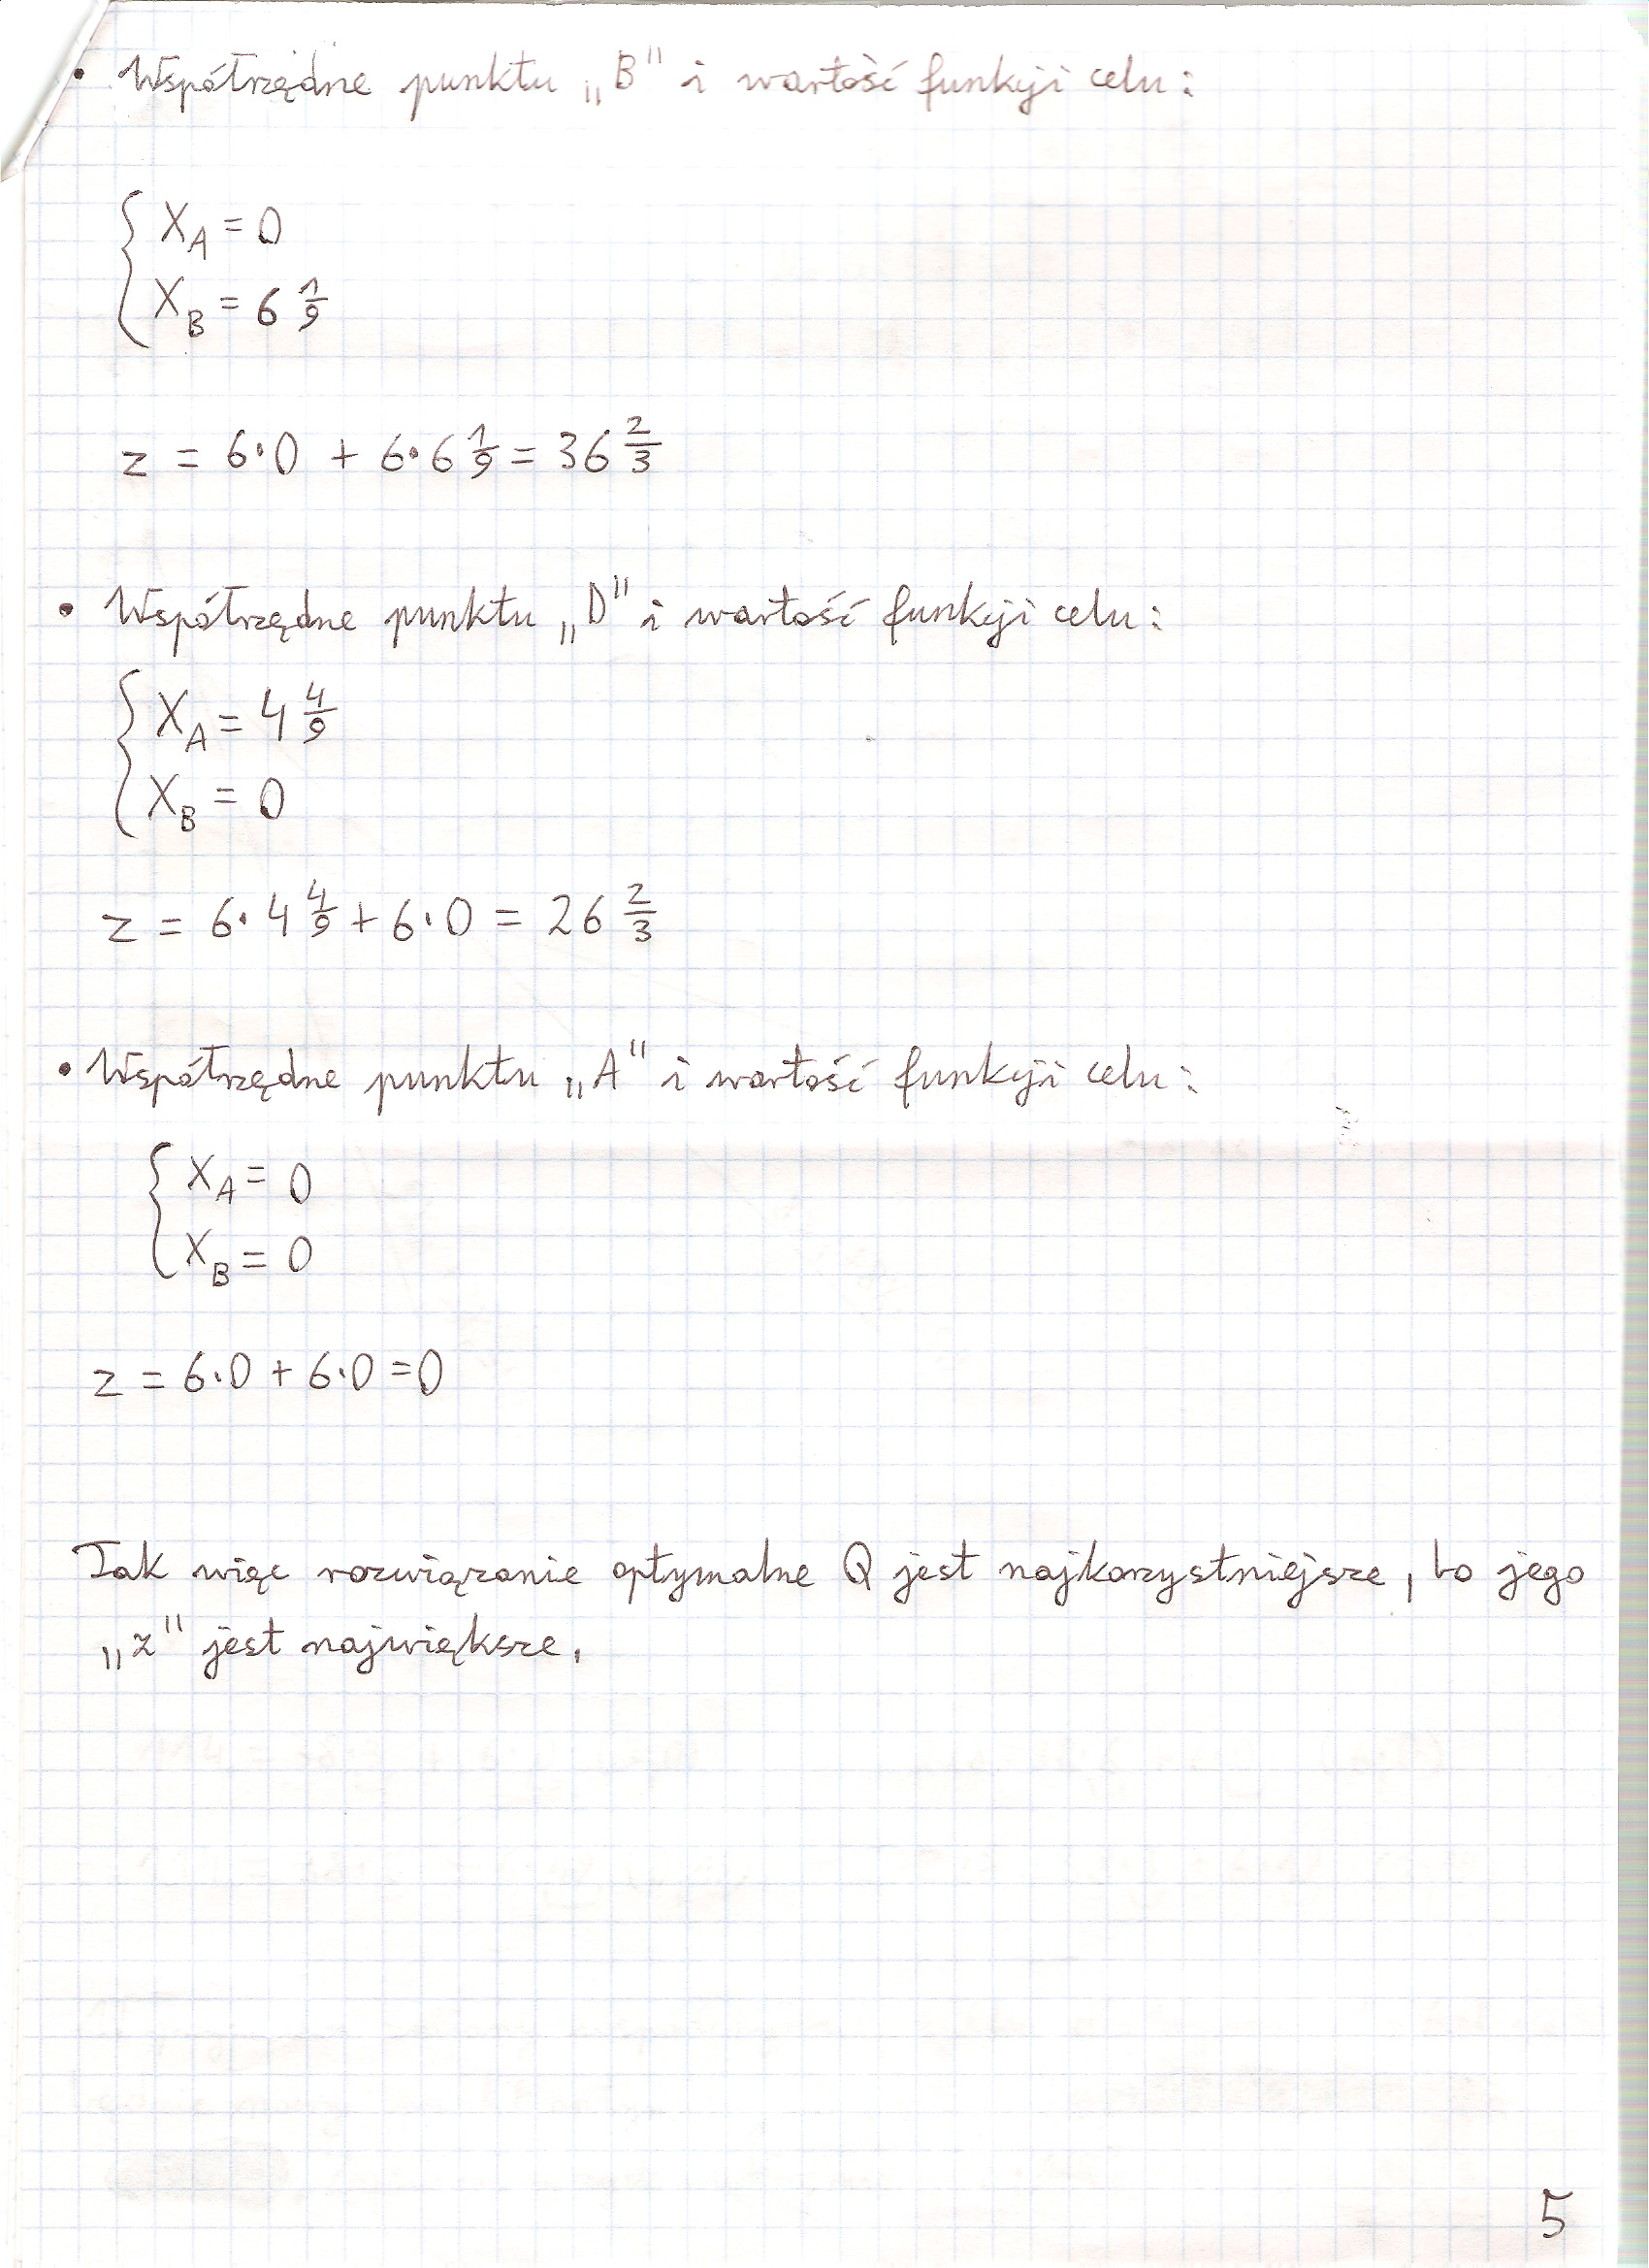 • Współrzędne punktu „B" i wartość funkcji celu:
{ X_A = 0
X_B = 6 1/9
z = 6·0 + 6·6 1/9 = 36 2/3
• Współrzędne punktu „D" i wartość funkcji celu:
{ X_A = 4 4/9
X_B = 0
z = 6·4 4/9 + 6·0 = 26 2/3
• Współrzędne punktu „A" i wartość funkcji celu:
{ X_A = 0
X_B = 0
z = 6·0 + 6·0 = 0
Tak więc rozwiązanie optymalne Q jest najkorzystniejsze, bo jego
„z" jest największe.
5